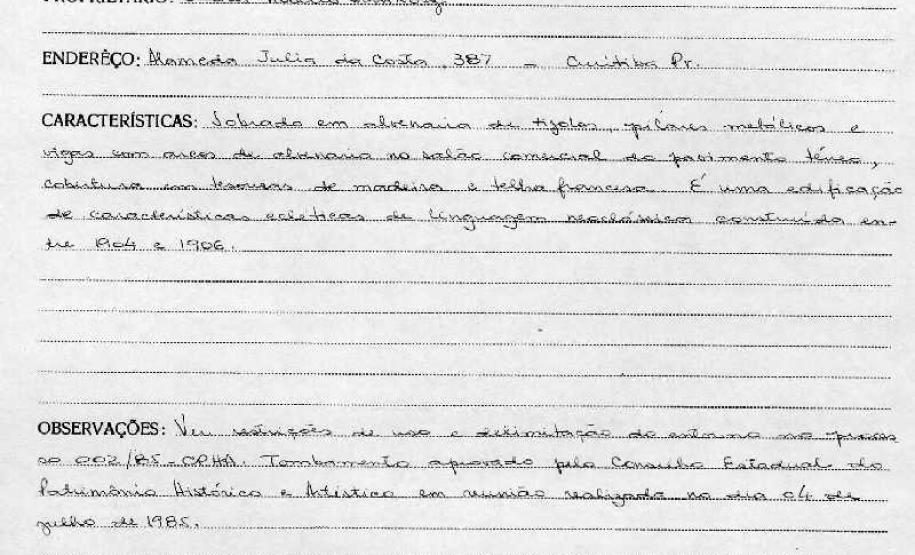 PROPRIETÁRIO:
ENDERÊÇO: Alameda Julia da Costa, 387 - Curitiba Pr.
CARACTERÍSTICAS: Sobrado em alvenaria de tijolos, pilares metálicos e
vigas com arcos de alvenaria no salão comercial do pavimento térreo,
cobertura em tesouras de madeira e telha francesa. É uma edificação
de características ecléticas de linguagem neoclássica construída en-
tre 1904 e 1906.
OBSERVAÇÕES: Ver restrições de uso e delimitação do entorno no proces
so 002/85-CPHA. Tombamento aprovado pelo Conselho Estadual do
Patrimônio Histórico e Artístico em reunião realizada no dia 04 de
julho de 1985.